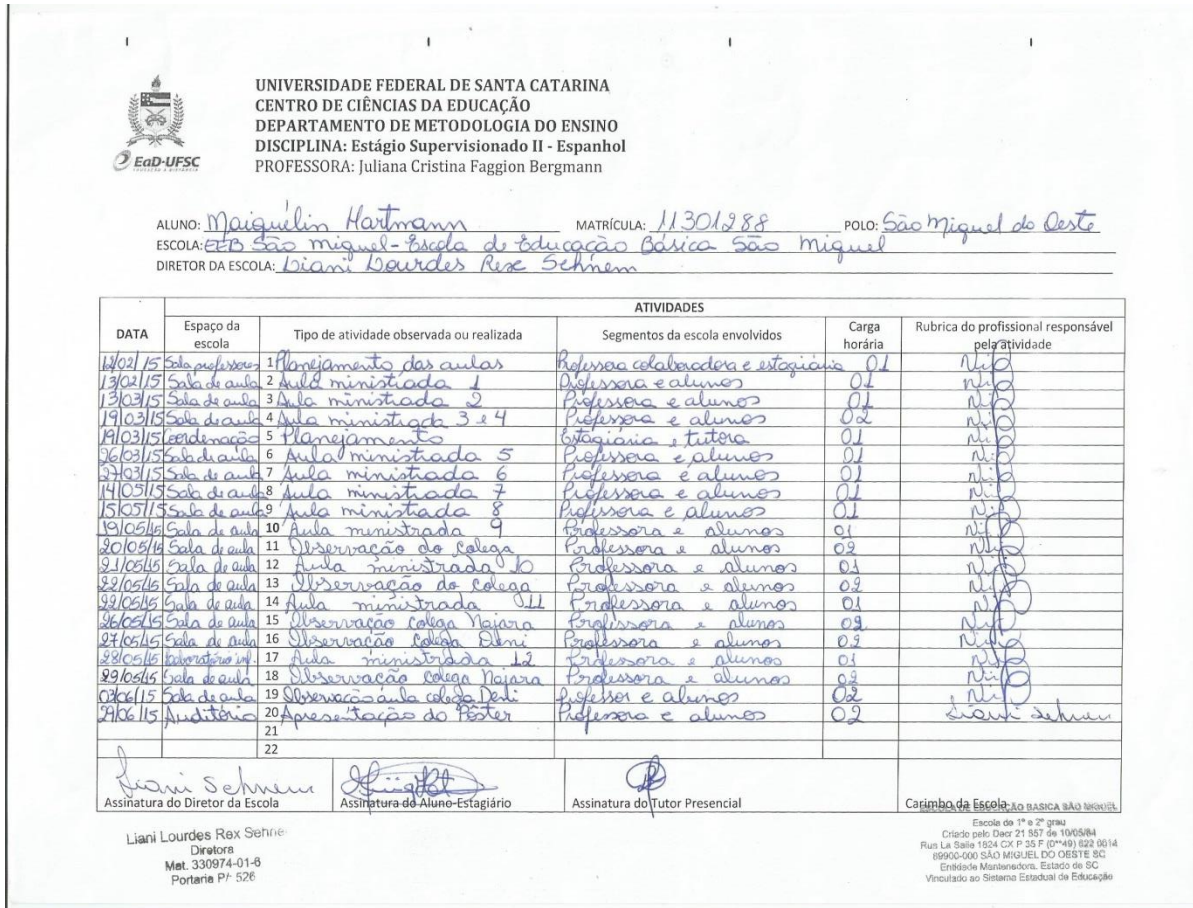 UNIVERSIDADE FEDERAL DE SANTA CATARINA
CENTRO DE CIÊNCIAS DA EDUCAÇÃO
DEPARTAMENTO DE METODOLOGIA DO ENSINO
DISCIPLINA: Estágio Supervisionado II - Espanhol
PROFESSORA: Juliana Cristina Faggion Bergmann
EaD-UFSC
EDUCAÇÃO A DISTÂNCIA
ALUNO: Maiquélin Hartmann MATRÍCULA: 11301288 POLO: São Miguel do Oeste
ESCOLA: EEB São miguel - Escola de Educação Básica São Miguel
DIRETOR DA ESCOLA: Liani Lourdes Rex Sehnem
ATIVIDADES
DATA Espaço da escola Tipo de atividade observada ou realizada Segmentos da escola envolvidos Carga horária Rubrica do profissional responsável pela atividade
12/02/15 Sala professores 1 Planejamento das aulas Professora colaboradora e estagiária 01
13/02/15 Sala de aula 2 Aula ministrada 1 Professora e alunos 01
13/03/15 Sala de aula 3 Aula ministrada 2 Professora e alunos 01
19/03/15 Sala de aula 4 Aula ministrada 3 e 4 Professora e alunos 02
19/03/15 Coordenação 5 Planejamento Estagiária e tutora 01
26/03/15 Sala de aula 6 Aula ministrada 5 Professora e alunos 01
27/03/15 Sala de aula 7 Aula ministrada 6 Professora e alunos 01
14/05/15 Sala de aula 8 Aula ministrada 7 Professora e alunos 01
15/05/15 Sala de aula 9 Aula ministrada 8 Professora e alunos 01
19/05/15 Sala de aula 10 Aula ministrada 9 Professora e alunos 01
20/05/15 Sala de aula 11 Observação do colega Professora e alunos 02
21/05/15 Sala de aula 12 Aula ministrada 10 Professora e alunos 01
22/05/15 Sala de aula 13 Observação do colega Professora e alunos 02
22/05/15 Sala de aula 14 Aula ministrada 11 Professora e alunos 01
26/05/15 Sala de aula 15 Observação colega Najara Professora e alunos 02
27/05/15 Sala de aula 16 Observação colega Deni Professora e alunos 02
28/05/15 Laboratório inf. 17 Aula ministrada 12 Professora e alunos 01
29/05/15 Sala de aula 18 Observação colega Najara Professora e alunos 02
03/06/15 Sala de aula 19 Observação aula colega Deni Professor e alunos 02
29/06/15 Auditório 20 Apresentação do Pôster Professora e alunos 02 Liani Sehnem
21
22
Liani Sehnem
Assinatura do Diretor da Escola Assinatura do Aluno-Estagiário Assinatura do Tutor Presencial Carimbo da Escola
Liani Lourdes Rex Sehne
Diretora
Mat. 330974-01-6
Portaria P/- 526
ESCOLA DE EDUCAÇÃO BASICA SÃO MIGUEL
Escola de 1º e 2º grau
Criado pelo Decr 21 857 de 10/05/84
Rua La Salle 1824 CX P 35 F (0**49) 622 0014
89900-000 SÃO MIGUEL DO OESTE SC
Entidade Mantenedora, Estado de SC
Vinculado ao Sistema Estadual de Educação